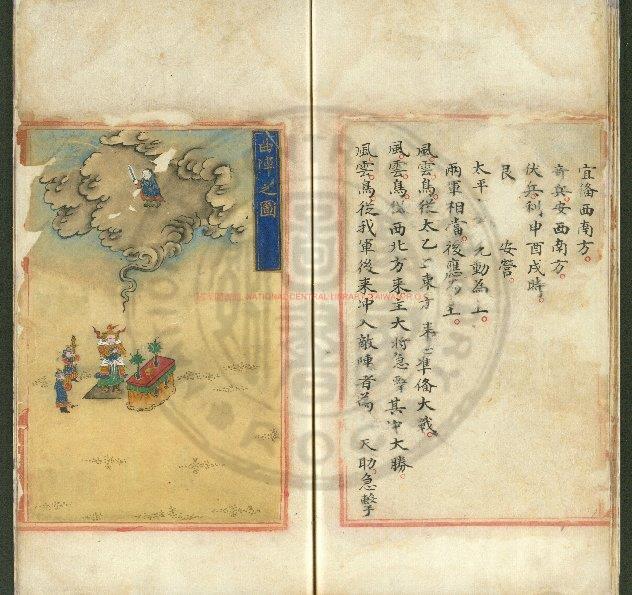 宜俻西南方。
奇兵安西南方。
伏兵利申酉戌時。
艮 安營。
太平 動為上。
兩軍相當後應為主。
風雲鳥從太乙上東方來 準俻大戰。
風雲鳥從西北方來主大將急擊其中大勝。
風雲鳥從我軍後来冲入敵陣者為 天助急擊
曲陣之圖
NATIONAL CENTRAL LIBRARY